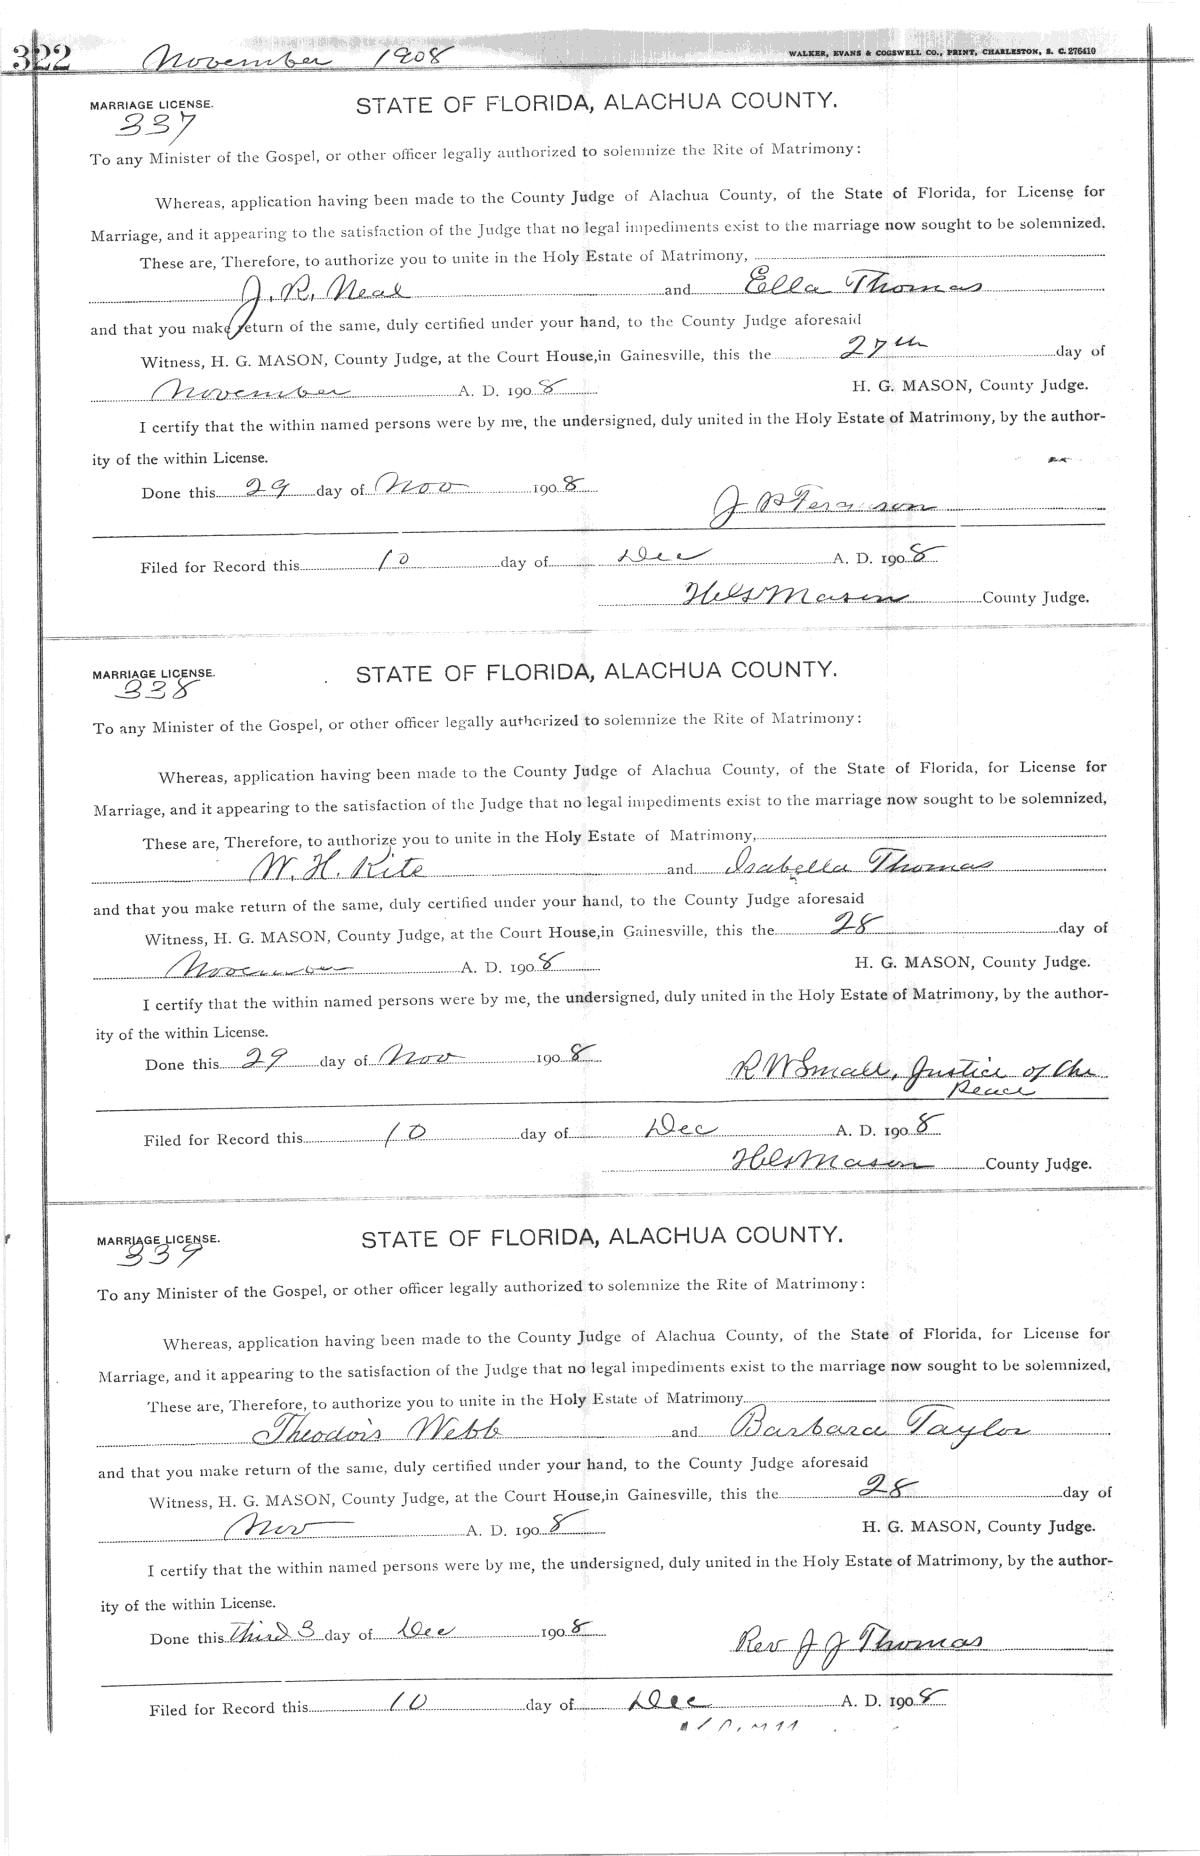 322
November 1908
WALKER, EVANS & COGSWELL CO., PRINT, CHARLESTON, S. C. 276410
MARRIAGE LICENSE.
337
STATE OF FLORIDA, ALACHUA COUNTY.
To any Minister of the Gospel, or other officer legally authorized to solemnize the Rite of Matrimony:
Whereas, application having been made to the County Judge of Alachua County, of the State of Florida, for License for
Marriage, and it appearing to the satisfaction of the Judge that no legal impediments exist to the marriage now sought to be solemnized.
These are, Therefore, to authorize you to unite in the Holy Estate of Matrimony,
J. R. Neal and Ella Thomas
and that you make return of the same, duly certified under your hand, to the County Judge aforesaid
Witness, H. G. MASON, County Judge, at the Court House, in Gainesville, this the 27th day of
November A. D. 1908 H. G. MASON, County Judge.
I certify that the within named persons were by me, the undersigned, duly united in the Holy Estate of Matrimony, by the author-
ity of the within License.
Done this 29 day of Nov 1908
J Ferguson
Filed for Record this 10 day of Dec A. D. 1908
Mason County Judge.
MARRIAGE LICENSE.
338
STATE OF FLORIDA, ALACHUA COUNTY.
To any Minister of the Gospel, or other officer legally authorized to solemnize the Rite of Matrimony:
Whereas, application having been made to the County Judge of Alachua County, of the State of Florida, for License for
Marriage, and it appearing to the satisfaction of the Judge that no legal impediments exist to the marriage now sought to be solemnized,
These are, Therefore, to authorize you to unite in the Holy Estate of Matrimony,
W. H. Kite and Isabella Thomas
and that you make return of the same, duly certified under your hand, to the County Judge aforesaid
Witness, H. G. MASON, County Judge, at the Court House, in Gainesville, this the 28 day of
November A. D. 1908 H. G. MASON, County Judge.
I certify that the within named persons were by me, the undersigned, duly united in the Holy Estate of Matrimony, by the author-
ity of the within License.
Done this 29 day of Nov 1908
R W Small, Justice of the
Peace
Filed for Record this 10 day of Dec A. D. 1908
Mason County Judge.
MARRIAGE LICENSE.
339
STATE OF FLORIDA, ALACHUA COUNTY.
To any Minister of the Gospel, or other officer legally authorized to solemnize the Rite of Matrimony:
Whereas, application having been made to the County Judge of Alachua County, of the State of Florida, for License for
Marriage, and it appearing to the satisfaction of the Judge that no legal impediments exist to the marriage now sought to be solemnized,
These are, Therefore, to authorize you to unite in the Holy Estate of Matrimony
Theodois Webb and Barbara Taylor
and that you make return of the same, duly certified under your hand, to the County Judge aforesaid
Witness, H. G. MASON, County Judge, at the Court House, in Gainesville, this the 28 day of
Nov A. D. 1908 H. G. MASON, County Judge.
I certify that the within named persons were by me, the undersigned, duly united in the Holy Estate of Matrimony, by the author-
ity of the within License.
Done this third 3 day of Dec 1908
Rev J J Thomas
Filed for Record this 10 day of Dec A. D. 1908